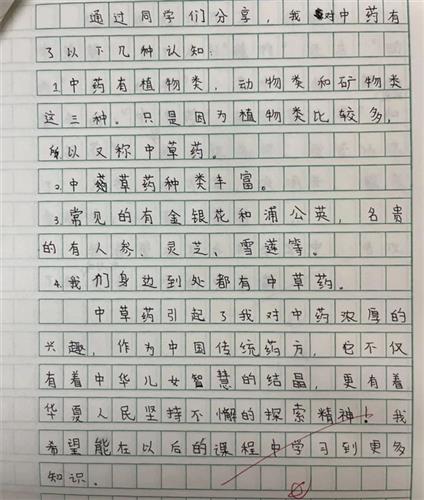 通过同学们分享，我对中药有
了以下几种认知：
1.中药有植物类，动物类和矿物类
这三种。只是因为植物类比较多，
所以又称中草药。
2.中药草药种类丰富。
3.常见的有金银花和浦公英，名贵
的有人参、灵芝、雪莲等。
4.我们身边到处都有中草药。
中草药引起了我对中药浓厚的
兴趣，作为中国传统药方，它不仅
有着中华儿女智慧的结晶，更有着
华夏人民坚持不懈的探索精神！我
希望能在以后的课程中学习到更多
知识。